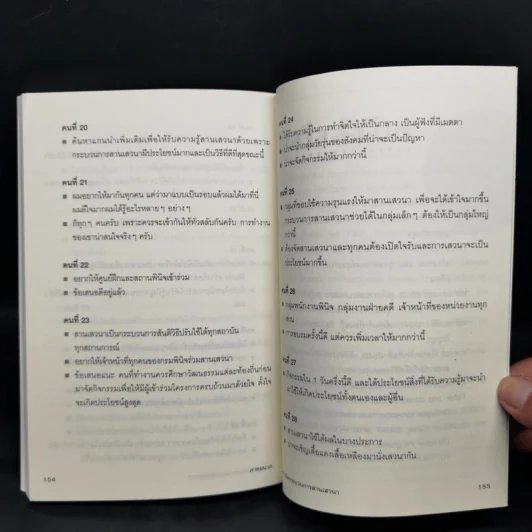 คนที่ 20
■ ค้นหาแกนนำเพิ่มเติมเพื่อให้รับความรู้สานเสวนาด้วยเพราะ
กระบวนการสานเสวนามีประโยชน์มากและเป็นวิธีที่ดีที่สุดขณะนี้
คนที่ 21
■ ผมอยากให้มากันทุกคน แต่ว่ามาแบบเป็นรอบแล้วผมได้มาที่นี่
ผมดีใจมากผมได้รู้อะไรหลายๆ อย่างๆ
■ ก็ทุกๆ คนครับ เพราะควรจะเข้ากันให้ทั่วสลับกันครับ การทำงาน
ของเขาน่าสนใจจริงๆ ครับ
คนที่ 22
■ อยากให้ศูนย์ฝึกและสถานพินิจเข้าร่วม
■ ข้อเสนอดีอยู่แล้ว
คนที่ 23
■ สานเสวนาเป็นกระบวนการสันติวิธีปรับใช้ได้ทุกสถาบัน
ทุกสถานการณ์
■ อยากให้เจ้าหน้าที่ทุกคนของกรมพินิจร่วมสานเสวนา
■ ข้อเสนอแนะ คนที่ทำงานควรศึกษาวัฒนธรรมแต่ละท้องถิ่นก่อน
มาจัดกิจกรรมเพื่อให้มีผู้เข้าร่วมโครงการครบถ้วนมาด้วยใจ ตั้งใจ
จะเกิดประโยชน์สูงสุด
154
ภาคผนวก
คนที่ 24
■ ได้รับความรู้ในการทำจิตใจให้เป็นกลาง เป็นผู้ฟังที่มีเมตตา
■ น่าจะนำกลุ่มวัยรุ่นของสังคมที่น่าจะเป็นปัญหา
■ น่าจะจัดกิจกรรมให้มากกว่านี้
คนที่ 25
■ กลุ่มที่ชอบใช้ความรุนแรงให้มาสานเสวนา เพื่อจะได้เข้าใจมากขึ้น
กระบวนการสานเสวนาช่วยได้ในกลุ่มเล็กๆ ต้องให้เป็นกลุ่มใหญ่
กว่านี้
■ ต้องจัดสานเสวนาและทุกคนต้องเปิดใจรับและการเสวนาจะเป็น
ประโยชน์มากขึ้น
คนที่ 26
■ กลุ่มพนักงานพินิจ กลุ่มงานฝ่ายคดี เจ้าหน้าที่ของหน่วยงานทุก
งาน
■ การอบรมครั้งนี้ดี แต่ควรเพิ่มเวลาให้มากกว่านี้
คนที่ 27
■ กิจกรรมใน 1 วันครั้งนี้ดี และได้ประโยชน์สิ่งที่ได้รับความรู้มาจะนำ
มาใช้ให้เกิดประโยชน์ทั้งตนเองและผู้อื่น
คนที่ 28
■ สานเสวนาใช้ได้ผลในบางประการ
■ น่าจะเชิญเสื้อแดงเสื้อเหลืองมานั่งเสวนากัน
กระบวนการสานเสวนา
155